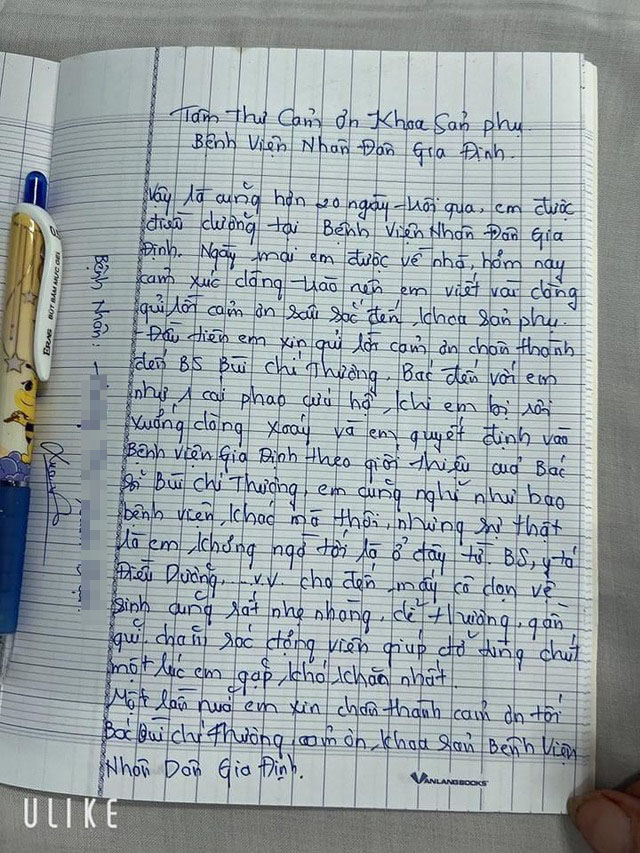 Tâm thư Cảm ơn Khoa Sản phụ.
Bệnh Viện Nhân Dân Gia Định.
Vậy là cũng hơn 20 ngày trôi qua, em được
điều dưỡng tại Bệnh Viện Nhân Dân Gia
Định. Ngày mai em được về nhà, hôm nay
cảm xúc dâng trào nên em viết vài dòng
gửi lời cảm ơn sâu sắc đến khoa sản phụ.
- Đầu tiên em xin gửi lời cảm ơn chân thành
đến BS Bùi Chí Thương, Bác đến với em
như 1 cái phao cứu hộ, khi em bị rơi
xuống dòng xoáy và em quyết định vào
Bệnh Viện Gia Định theo giới thiệu của Bác
sĩ Bùi Chí Thương, em cũng nghĩ như bao
bệnh viện khác mà thôi, nhưng sự thật
là em không ngờ tới là ở đây từ BS, y tá
Điều Dưỡng, ...v.v. cho đến mấy cô dọn vệ
sinh cũng rất nhẹ nhàng, dễ thương, gần
gũi chăm sóc động viên giúp đỡ từng chút
một lúc em gặp khó khăn nhất.
Một lần nữa em xin chân thành cảm ơn tới
Bác Bùi Chí Thương, cảm ơn khoa sản Bệnh Viện
Nhân Dân Gia Định.
Bệnh Nhân:
VANLANGBOOKS
BÚT BẤM MỰC GEL
ULIKE